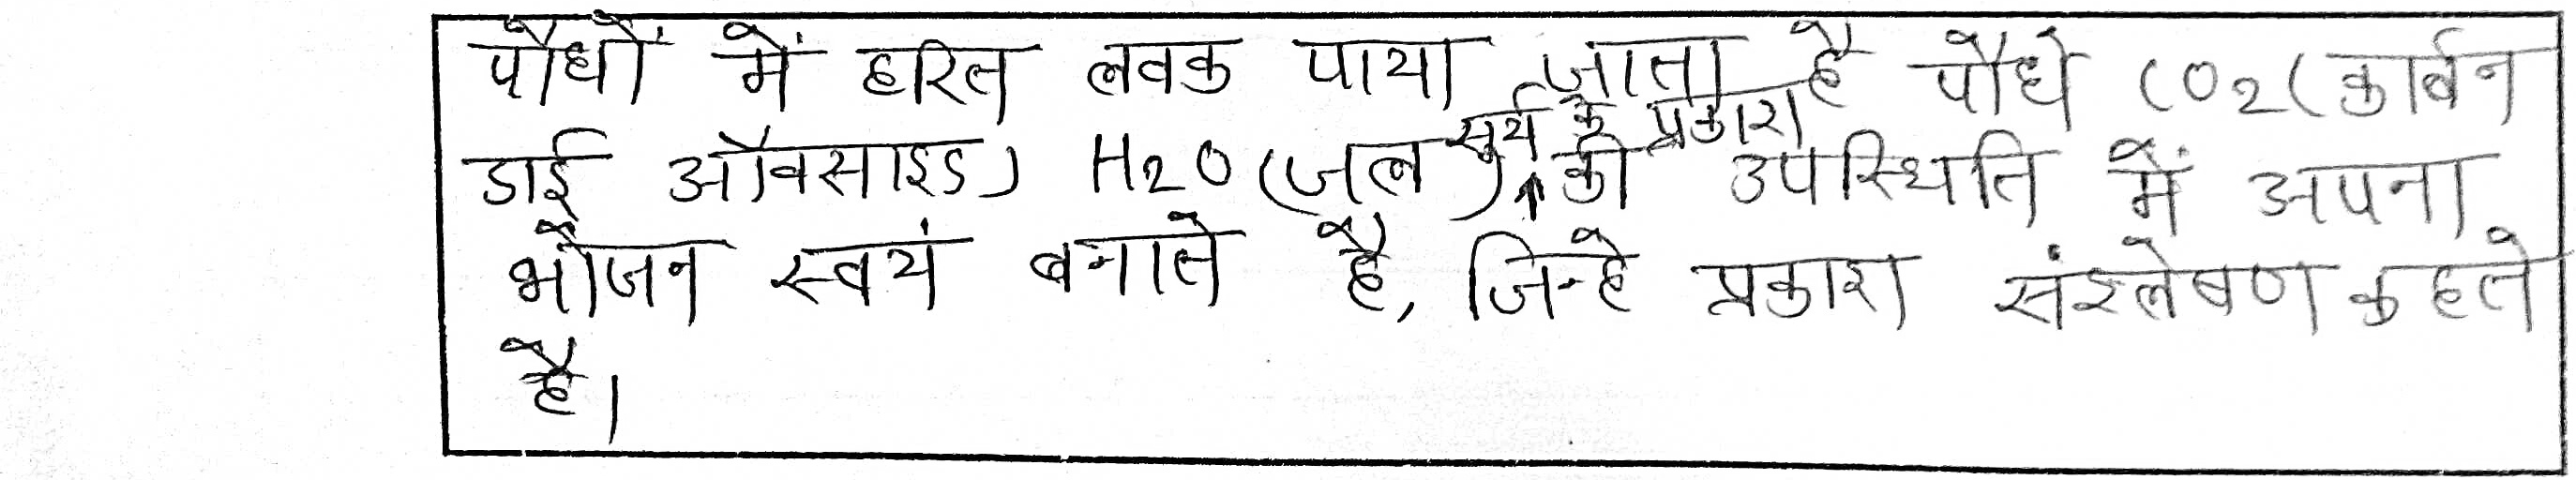 पौधों में हरित लवक पाया जाता है पौधे CO2 (कार्बन
डाई ऑक्साइड) H2O (जल) सूर्य के प्रकाश की उपस्थिति में अपना
भोजन स्वयं बनाते है, जिन्हे प्रकाश संश्लेषण कहते
है।